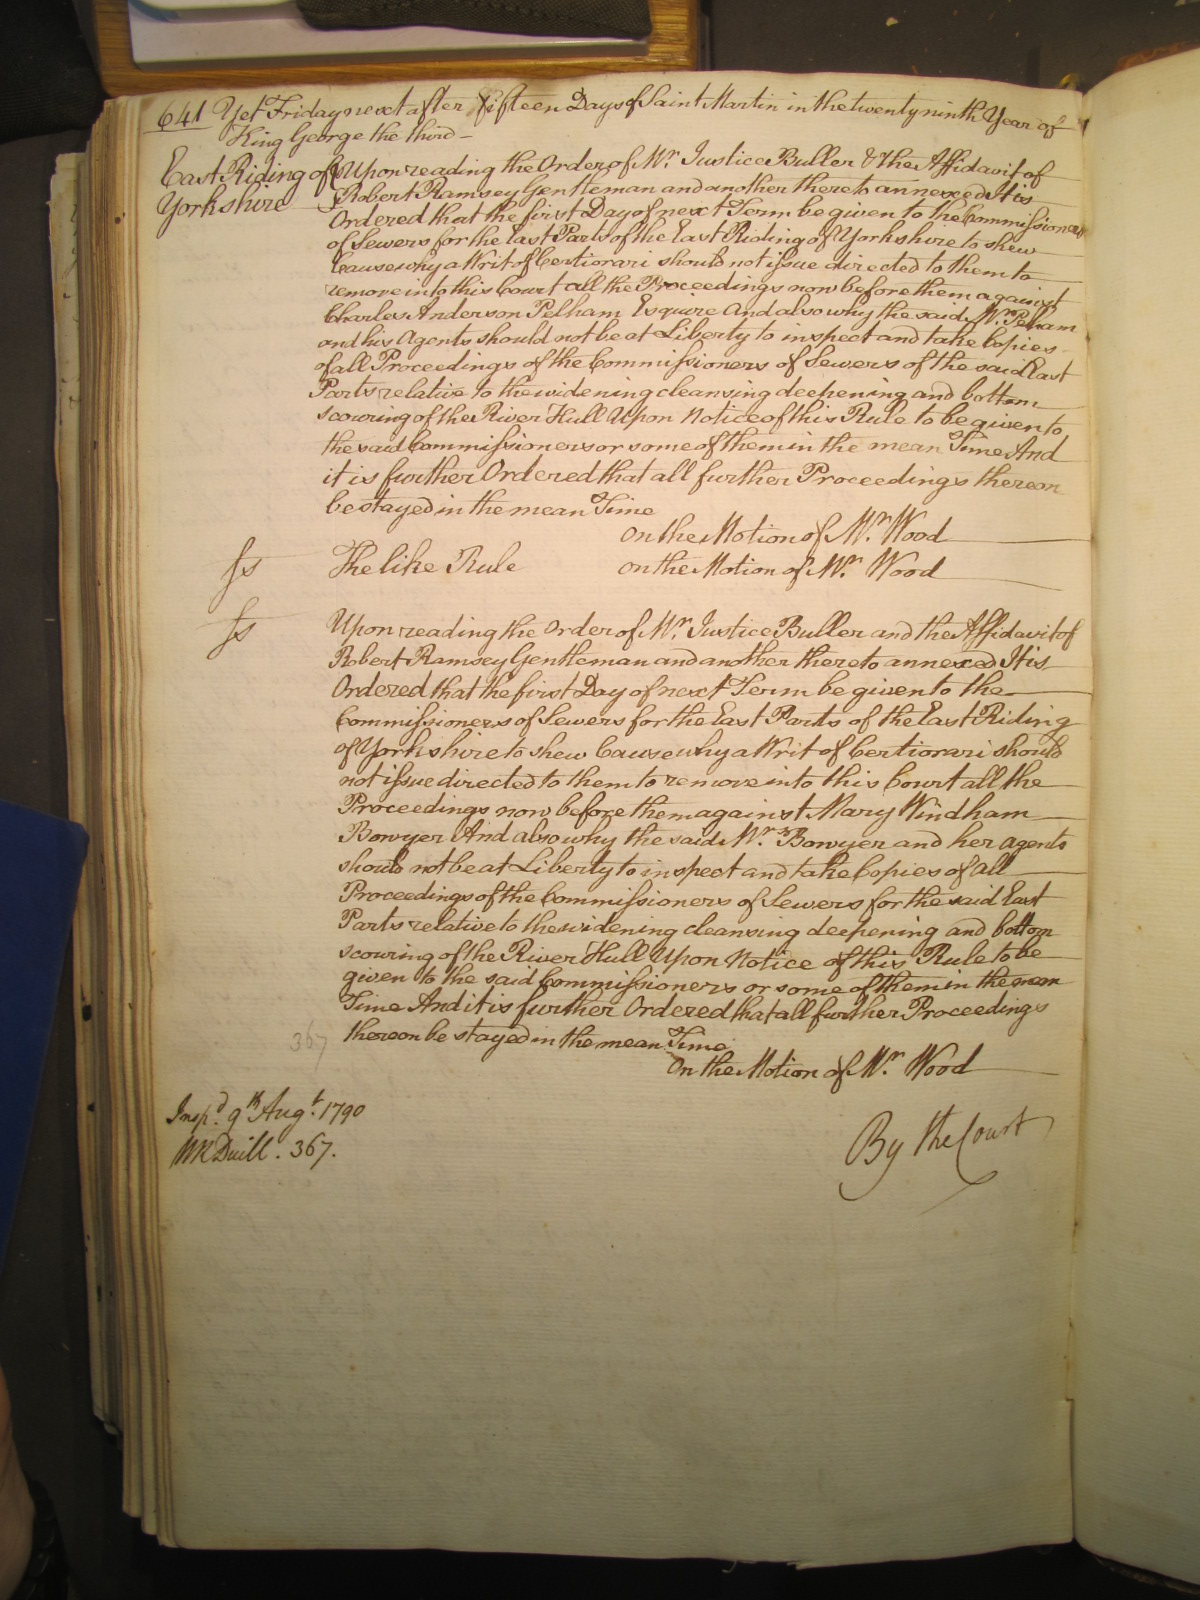 641 Yet Friday next after fifteen Days of Saint Martin in the twenty ninth Year of
King George the third
East Riding of Yorkshire
Upon reading the Order of Mr. Justice Buller & the Affidavit of
Robert Ramsey Gentleman and another thereto annexed It is
Ordered that the first Day of next Term be given to the Commissioners
of Sewers for the East Parts of the East Riding of Yorkshire to shew
Cause why a Writ of Certiorari should not issue directed to them to
remove into this Court all the Proceedings now before them against
Charles Anderson Pelham Esquire And also why the said Mr. Pelham
and his Agents should not be at Liberty to inspect and take Copies
of all Proceedings of the Commissioners of Sewers of the said East
Parts relative to the widening cleansing deepening and bottom
scouring of the River Hull Upon Notice of this Rule to be given to
the said Commissioners or some of them in the mean Time And
it is further Ordered that all further Proceedings thereon
be stayed in the mean Time
On the Motion of Mr. Wood
ss The like Rule on the Motion of Mr. Wood
ss Upon reading the Order of Mr. Justice Buller and the Affidavit of
Robert Ramsey Gentleman and another thereto annexed It is
Ordered that the first Day of next Term be given to the
Commissioners of Sewers for the East Parts of the East Riding
of Yorkshire to shew Cause why a Writ of Certiorari should
not issue directed to them to remove into this Court all the
Proceedings now before them against Mary Windham
Bowyer And also why the said Mrs. Bowyer and her Agents
should not be at Liberty to inspect and take Copies of all
Proceedings of the Commissioners of Sewers for the said East
Parts relative to the widening cleansing deepening and bottom
scouring of the River Hull Upon Notice of this Rule to be
given to the said Commissioners or some of them in the mean
Time And it is further Ordered that all further Proceedings
thereon be stayed in the mean Time
367
On the Motion of Mr. Wood
Insp.d 9th Augt. 1790
367.
By the Court